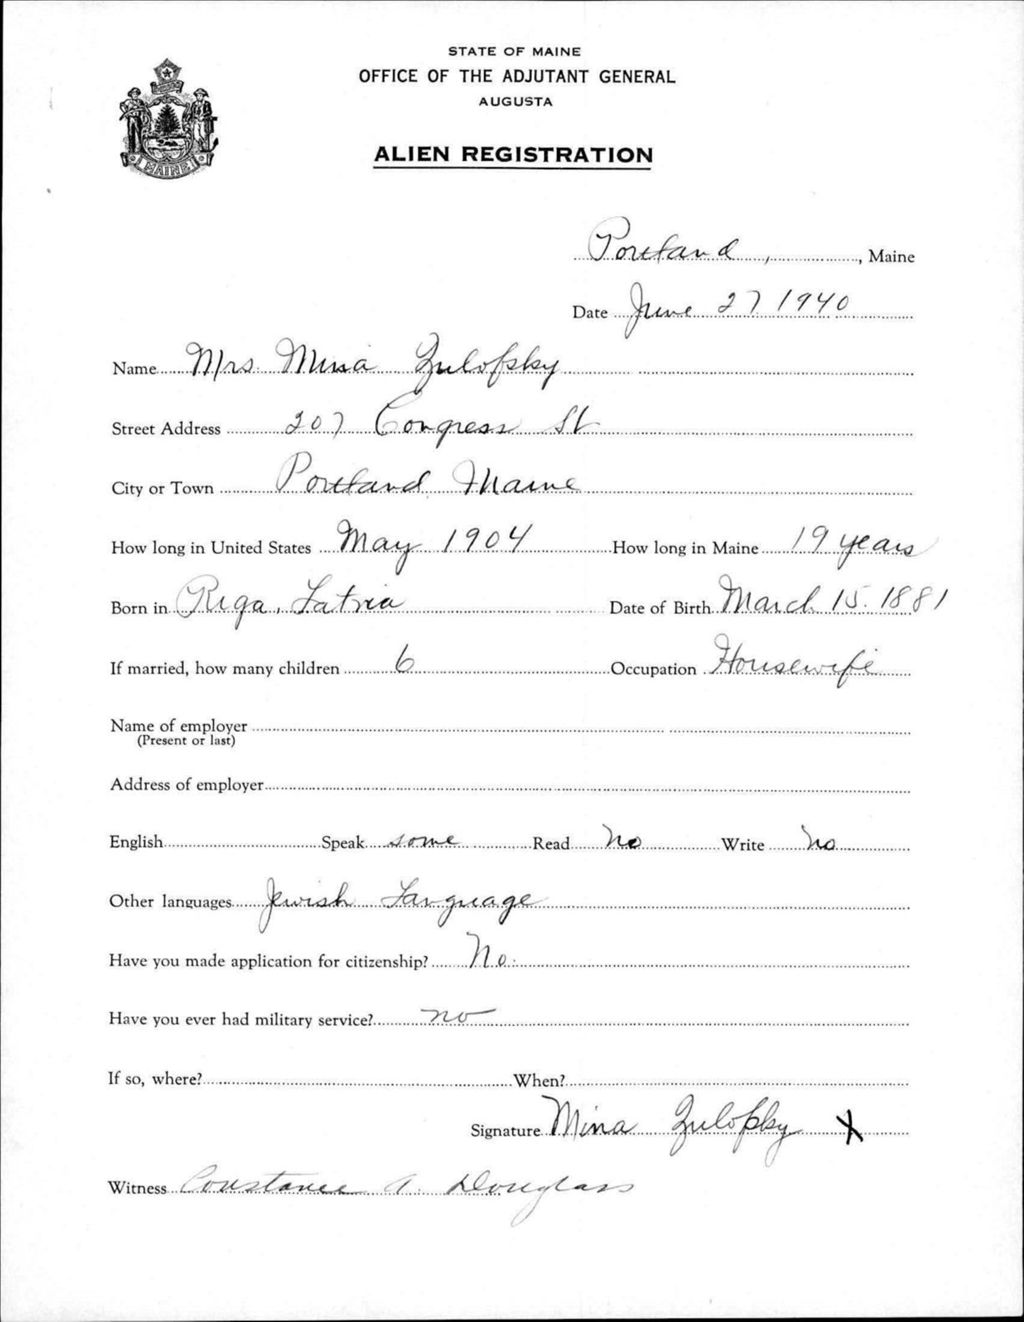 STATE OF MAINE
OFFICE OF THE ADJUTANT GENERAL
AUGUSTA
ALIEN REGISTRATION
MAINE
Portland, Maine
Date June 27 1940
Name Mrs. Mina Zulofsky
Street Address 207 Congress St
City or Town Portland Maine
How long in United States May 1904 How long in Maine 19 years
Born in Riga, Latvia Date of Birth March 15. 1881
If married, how many children 6 Occupation Housewife
Name of employer
(Present or last)
Address of employer
English Speak some Read No Write No
Other languages Jewish Language
Have you made application for citizenship? No.
Have you ever had military service? no
If so, where? When?
Signature Mina Zulofsky X
Witness Constance A. Douglass